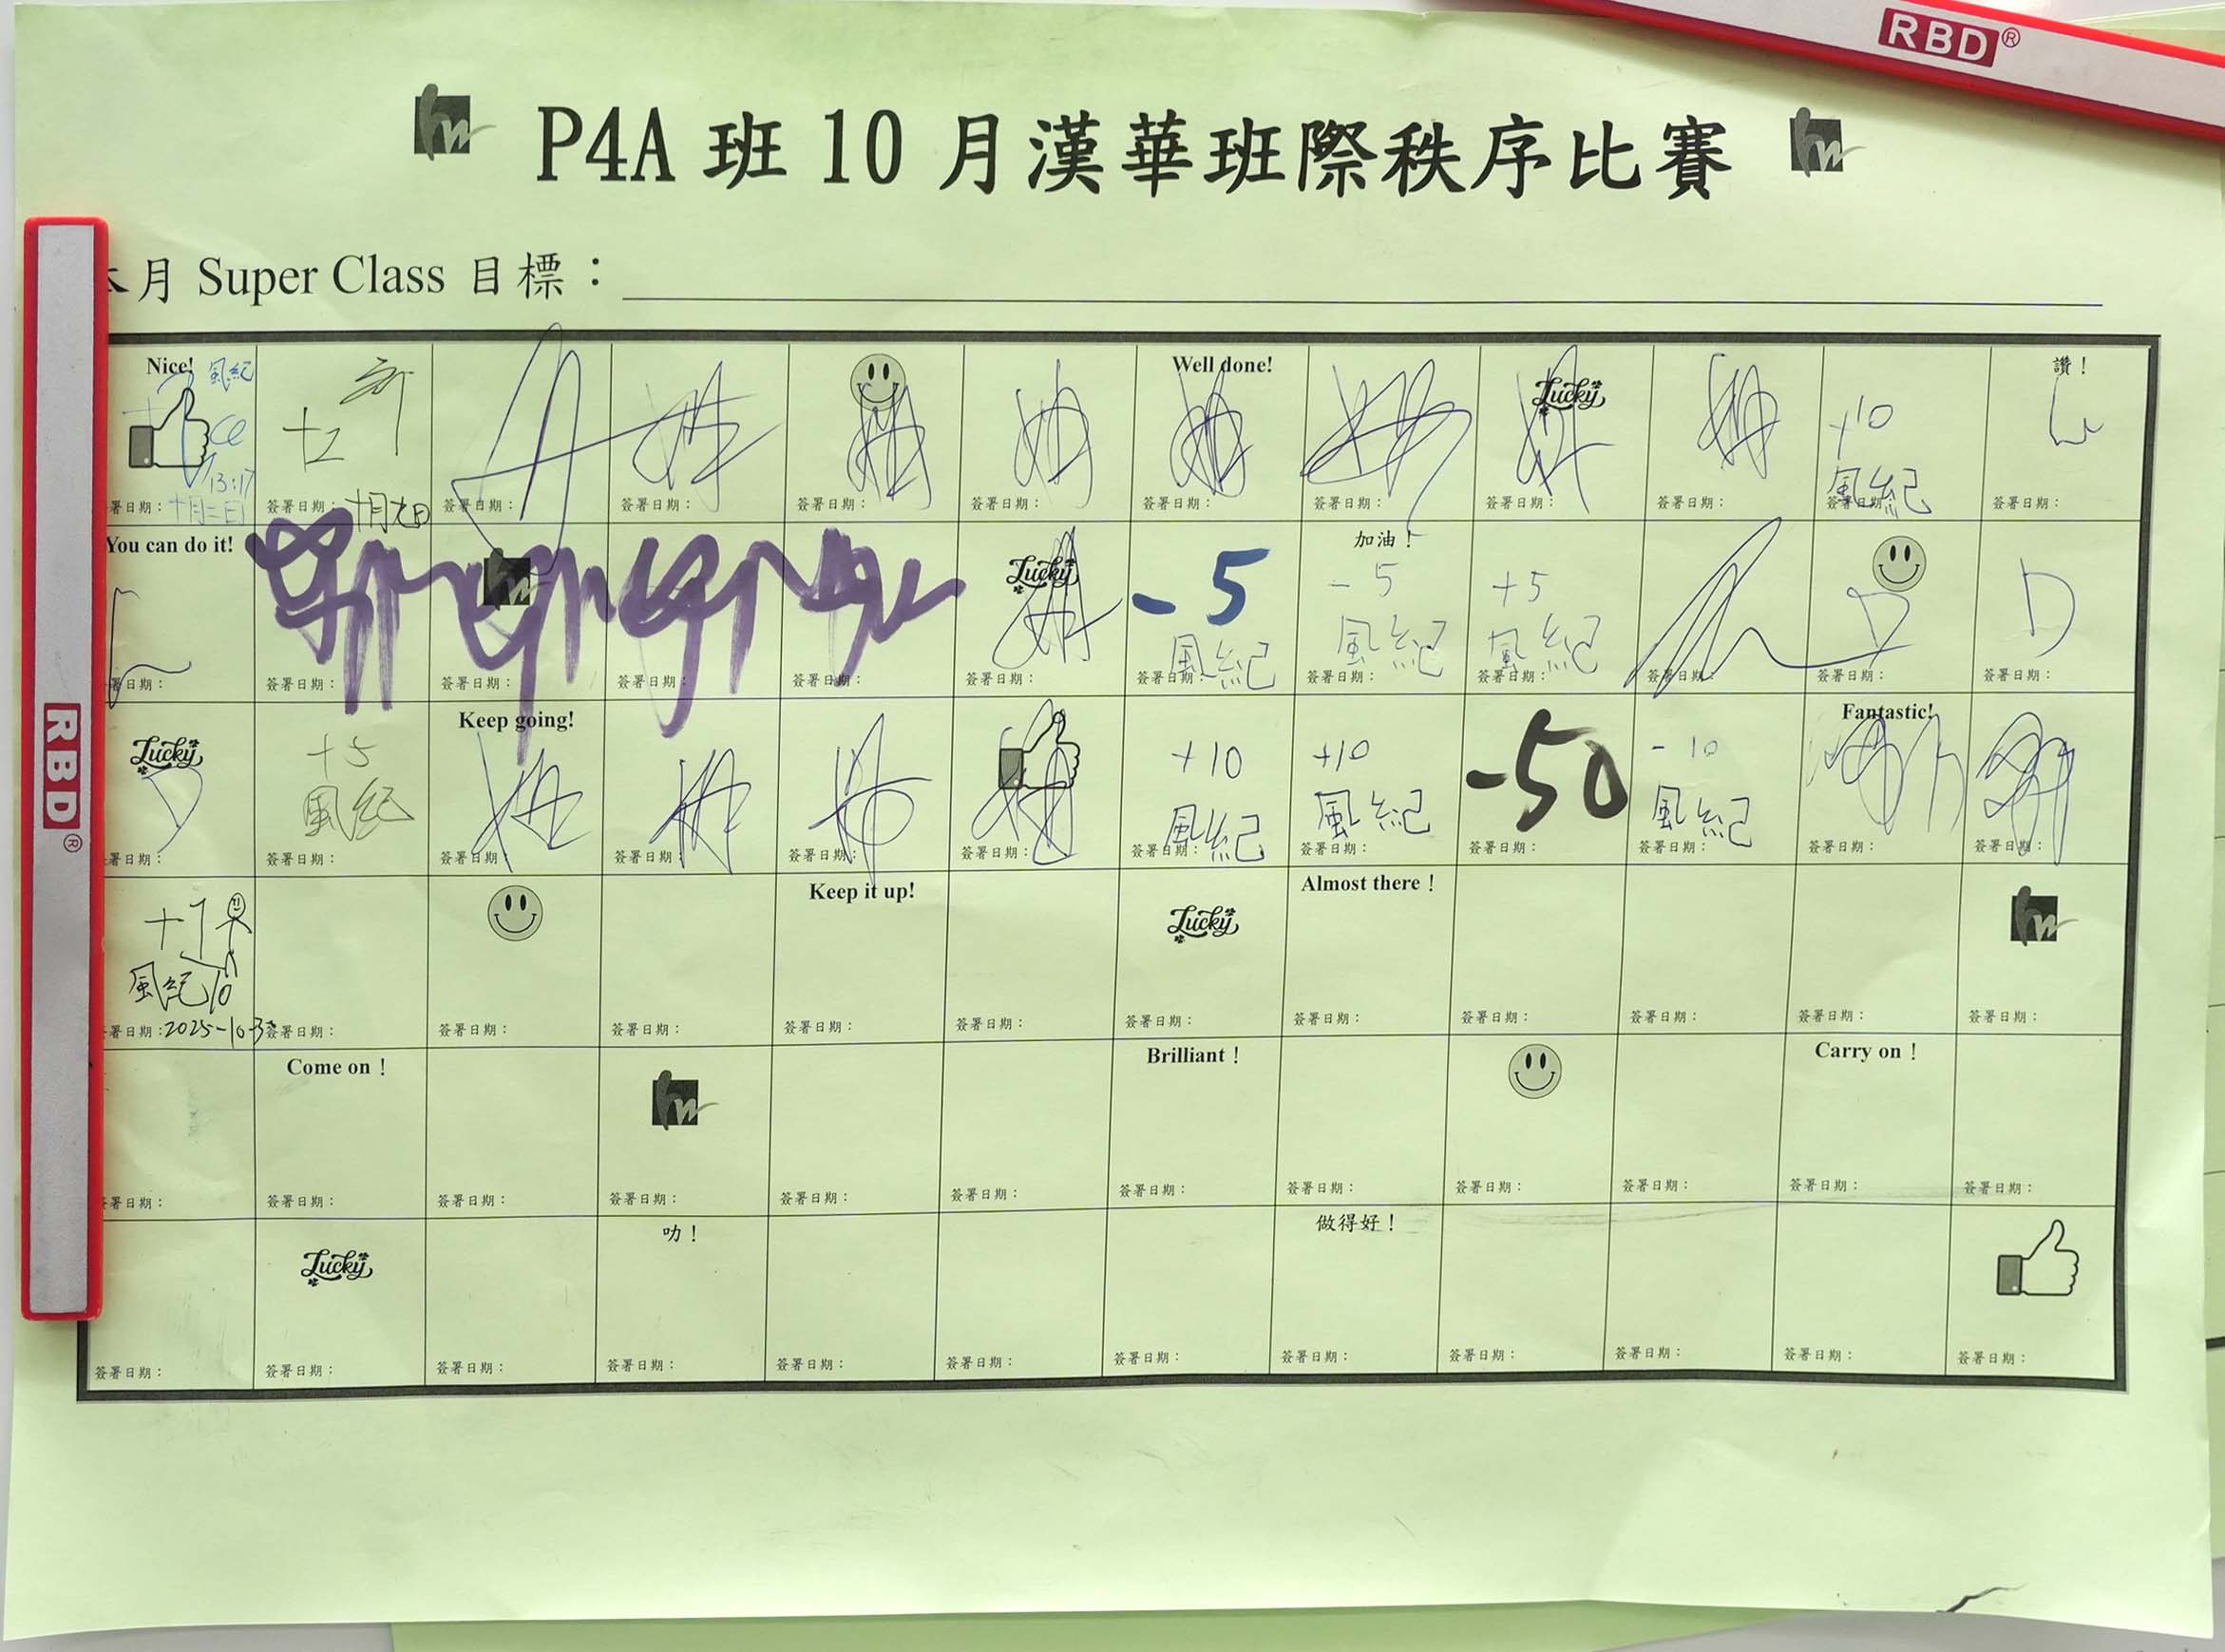 RBD®
P4A 班 10 月漢華班際秩序比賽
月 Super Class 目標：
Nice! 風紀
13:17
署日期：十月二日
簽署日期： 十月九日
簽署日期：
簽署日期：
簽署日期：
簽署日期：
Well done!
簽署日期：
簽署日期：
Lucky
簽署日期：
簽署日期：
+10
風紀
簽署日期
讚！
簽署日期：
You can do it!
署日期：
簽署日期：
hw
簽署日期：
簽署日期：
簽署日期：
Lucky
簽署日期：
-5
風紀
簽署日期：
加油！
-5
風紀
簽署日期：
+5
風紀
簽署日期：
簽署日期
簽署日期：
D
簽署日期：
Lucky
署日期：
+5
風紀
簽署日期：
Keep going!
簽署日期
簽署日期：
簽署日期：
簽署日期：
+10
風紀
簽署日期：
+10
風紀
簽署日期：
-50
簽署日期：
-10
風紀
簽署日期：
Fantastic!
簽署日期：
簽署日期：
風紀
署日期：2025-10-3
簽署日期：
簽署日期：
簽署日期：
Keep it up!
簽署日期：
簽署日期：
Lucky
簽署日期：
Almost there！
簽署日期：
簽署日期：
簽署日期：
簽署日期：
hw
簽署日期：
署日期：
Come on！
簽署日期：
簽署日期：
hw
簽署日期：
簽署日期：
簽署日期：
Brilliant！
簽署日期：
簽署日期：
簽署日期：
簽署日期：
Carry on！
簽署日期：
簽署日期：
簽署日期：
Lucky
簽署日期：
簽署日期：
叻！
簽署日期：
簽署日期：
簽署日期：
簽署日期：
做得好！
簽署日期：
簽署日期：
簽署日期：
簽署日期：
簽署日期：
RBD®